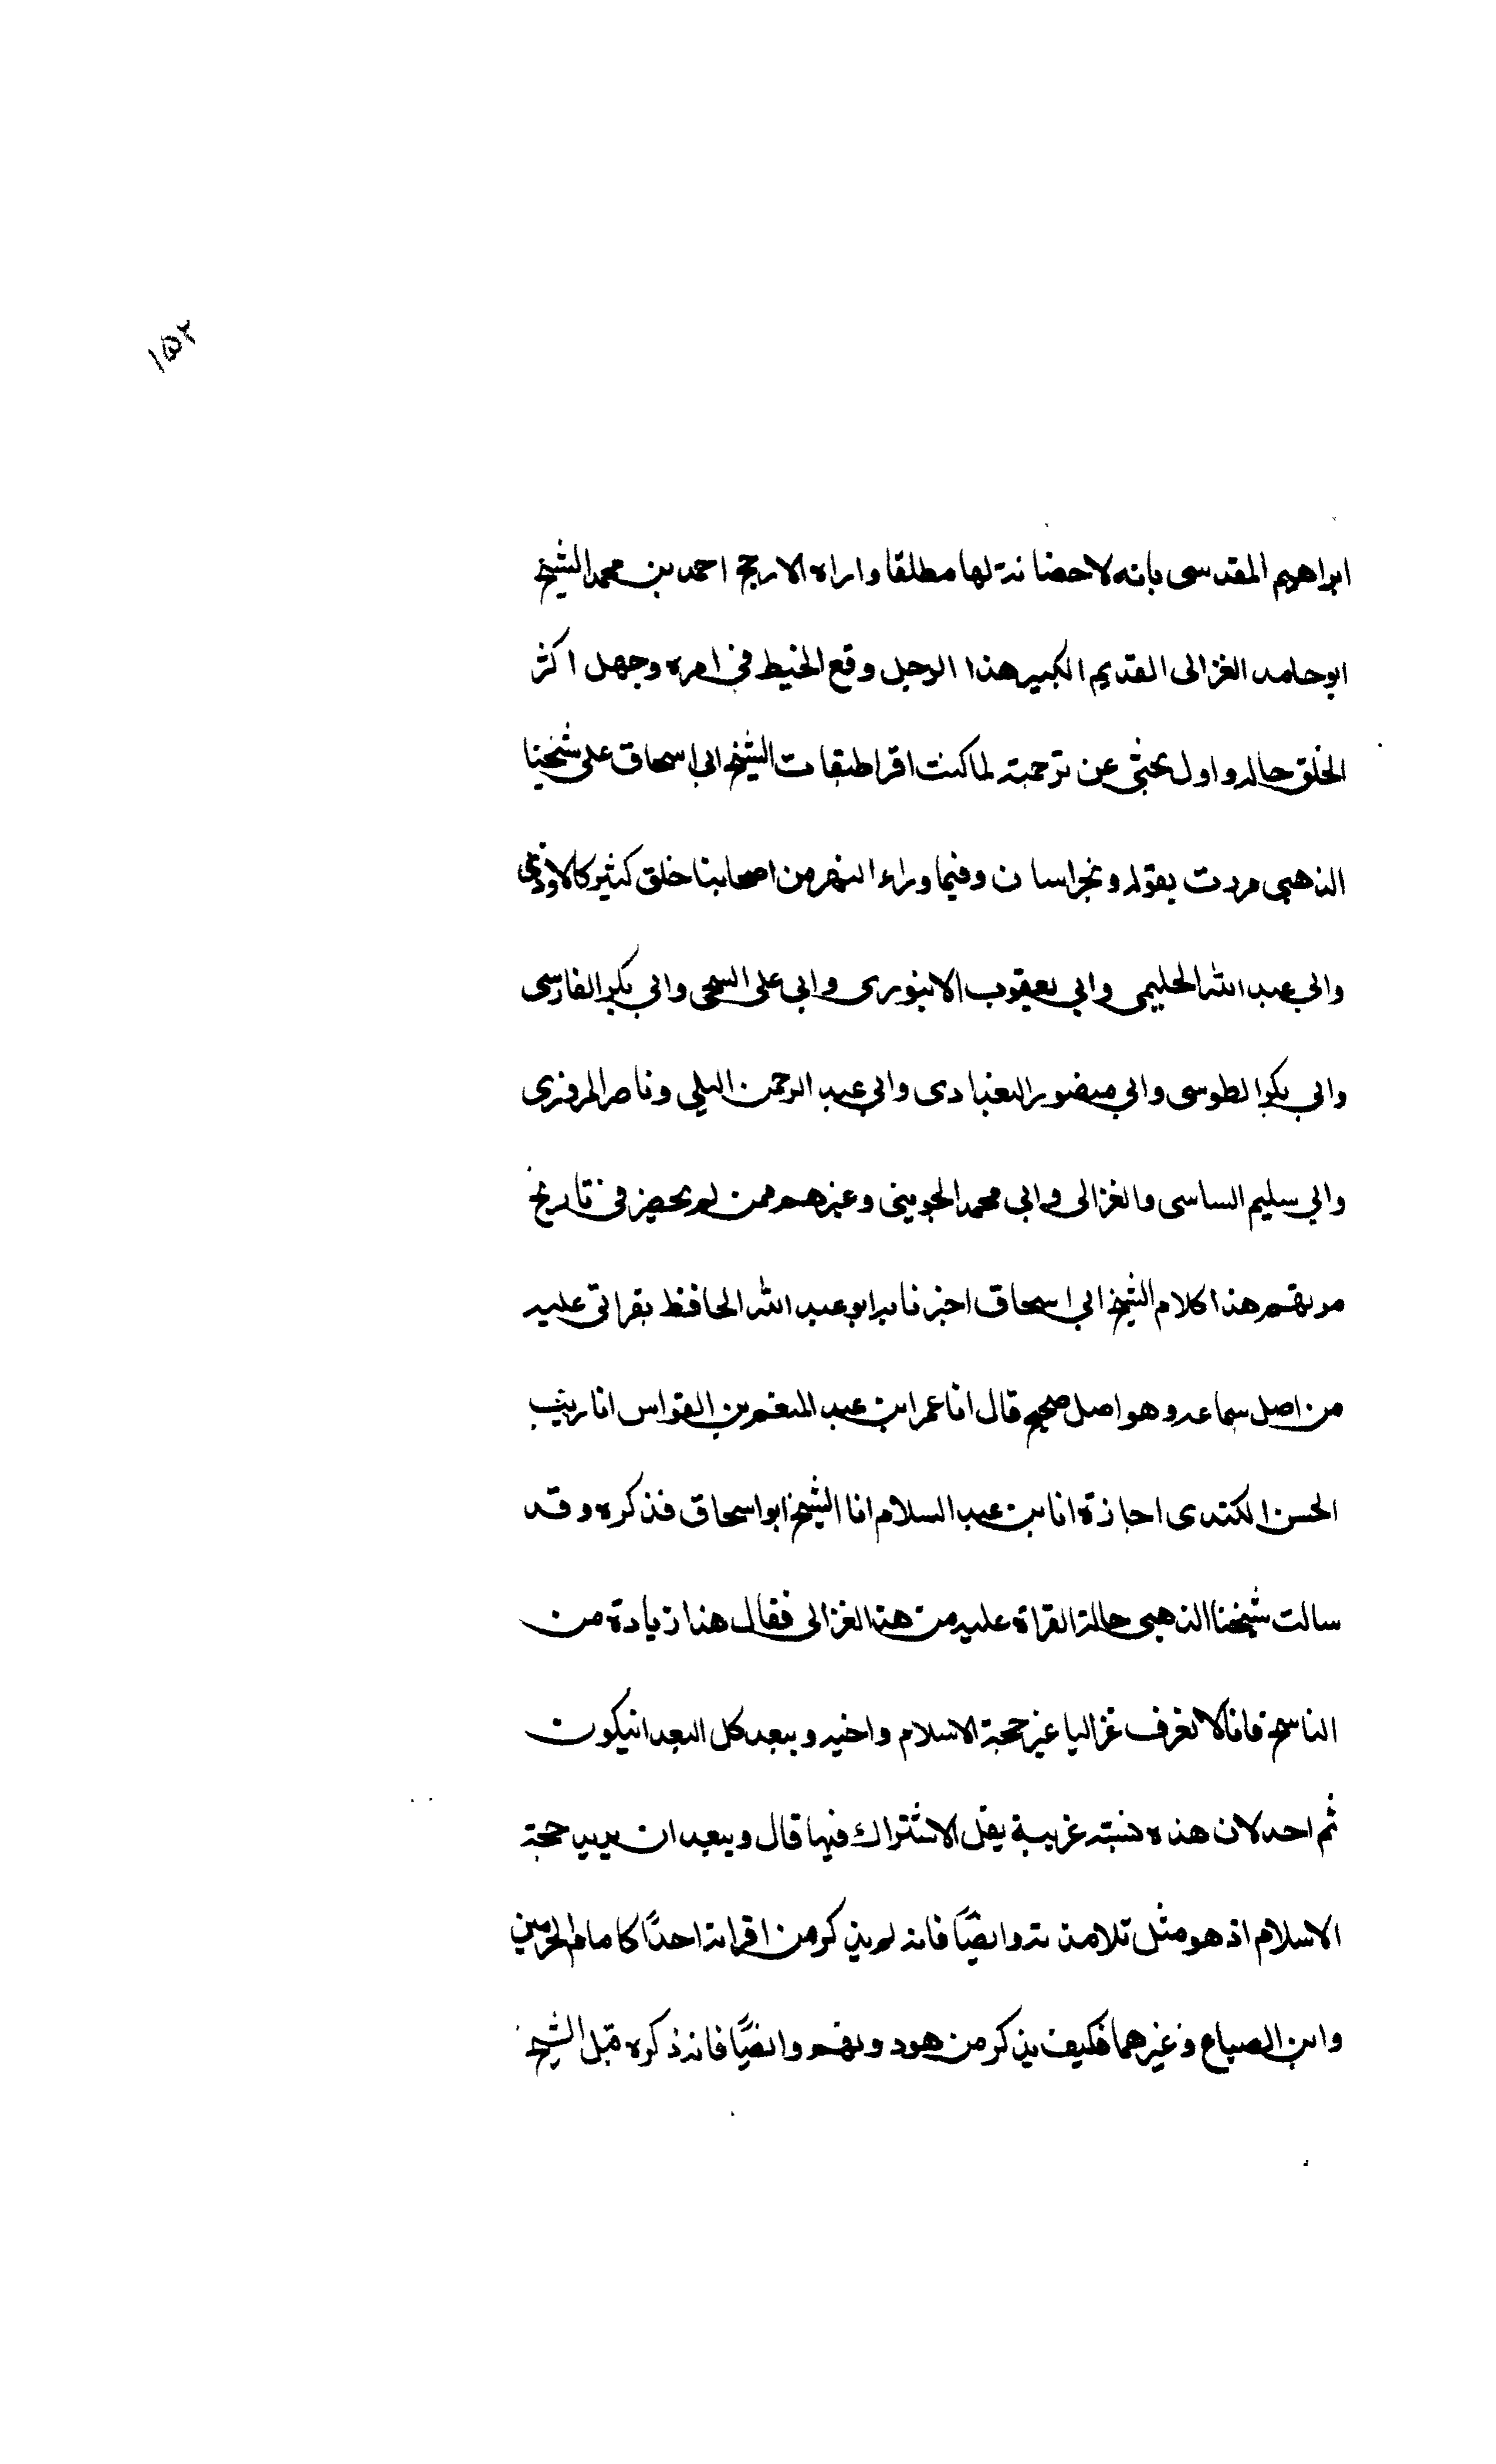 ١٥٢
ابراهيم المقدسى بانه لا حضانة لها مطلقا واراه الارجح احمد بن محمد الشيخ
ابو حامد الغزالى القديم الكبير هذا الرجل وقع الخبط فى امره وجهل اكثر
الخلق حاله واول بحثى عن ترجمته لما كنت اقرا طبقات الشيخ ابى اسحاق على شيخنا
الذهبى مررت بقوله وبخراسان وفيما وراء النهر من اصحابنا خلق كثير كالاودنى
وابى عبد الله الحليمى وابى يعقوب الابيوردى وابى على السنجى وابى بكر الفارسى
وابى بكر الطوسى وابى منصور البغدادى وابى عبد الرحمن النيلى وناصر المروزى
وابى سليم الساسى والغزالى وابى محمد الجوينى وغيرهم ممن لم يحضرنى تاريخ
موتهم هذا كلام الشيخ ابى اسحاق اخبرنا به ابو عبد الله الحافظ بقراتى عليه
من اصل سماعه وهو اصل صحيح قال انا عمر ابن عبد المنعم بن القواس انا زينب
الحسن الكندى اجازة انا بن عبد السلام انا الشيخ ابو اسحاق فذكره وقد
سالت شيخنا الذهبى حالة القراة عليه من هذا الغزالى فقال هذا زيادة من
الناسخ فانا لا نعرف غزاليا غير حجة الاسلام واخيه ويبعد كل البعد انيكون
ثم احد لان هذه نسبته غريبة يقل الاشتراك فيها قال ويبعد ان يريد حجة
الاسلام اذ هو مثل تلامذته وايضًا فانه لم يذكر من اقرانه احدًا كامام الحرمين
وابن الصباغ وغيرهما فكيف يذكر من هو دونهم وايضًا فانه ذكره قبل الشيخ